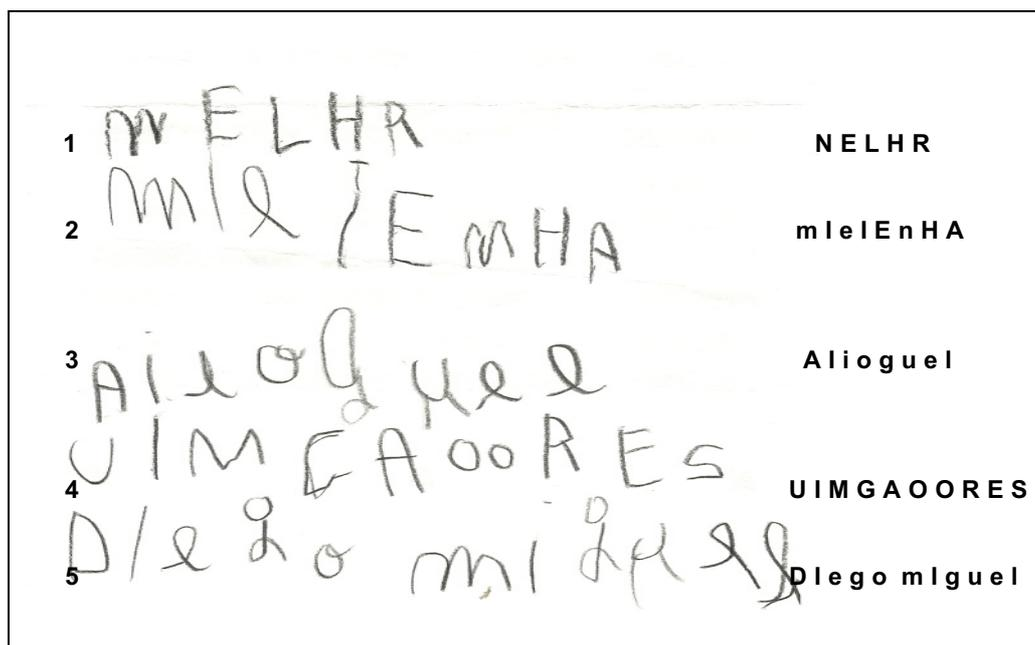 1 mELHR NELHR
2 mIelEmHA mIelEnHA
3 Ailoguel Alioguel
4 UIMGAOORES UIMGAOORES
5 DIego miguel DIego mIguel